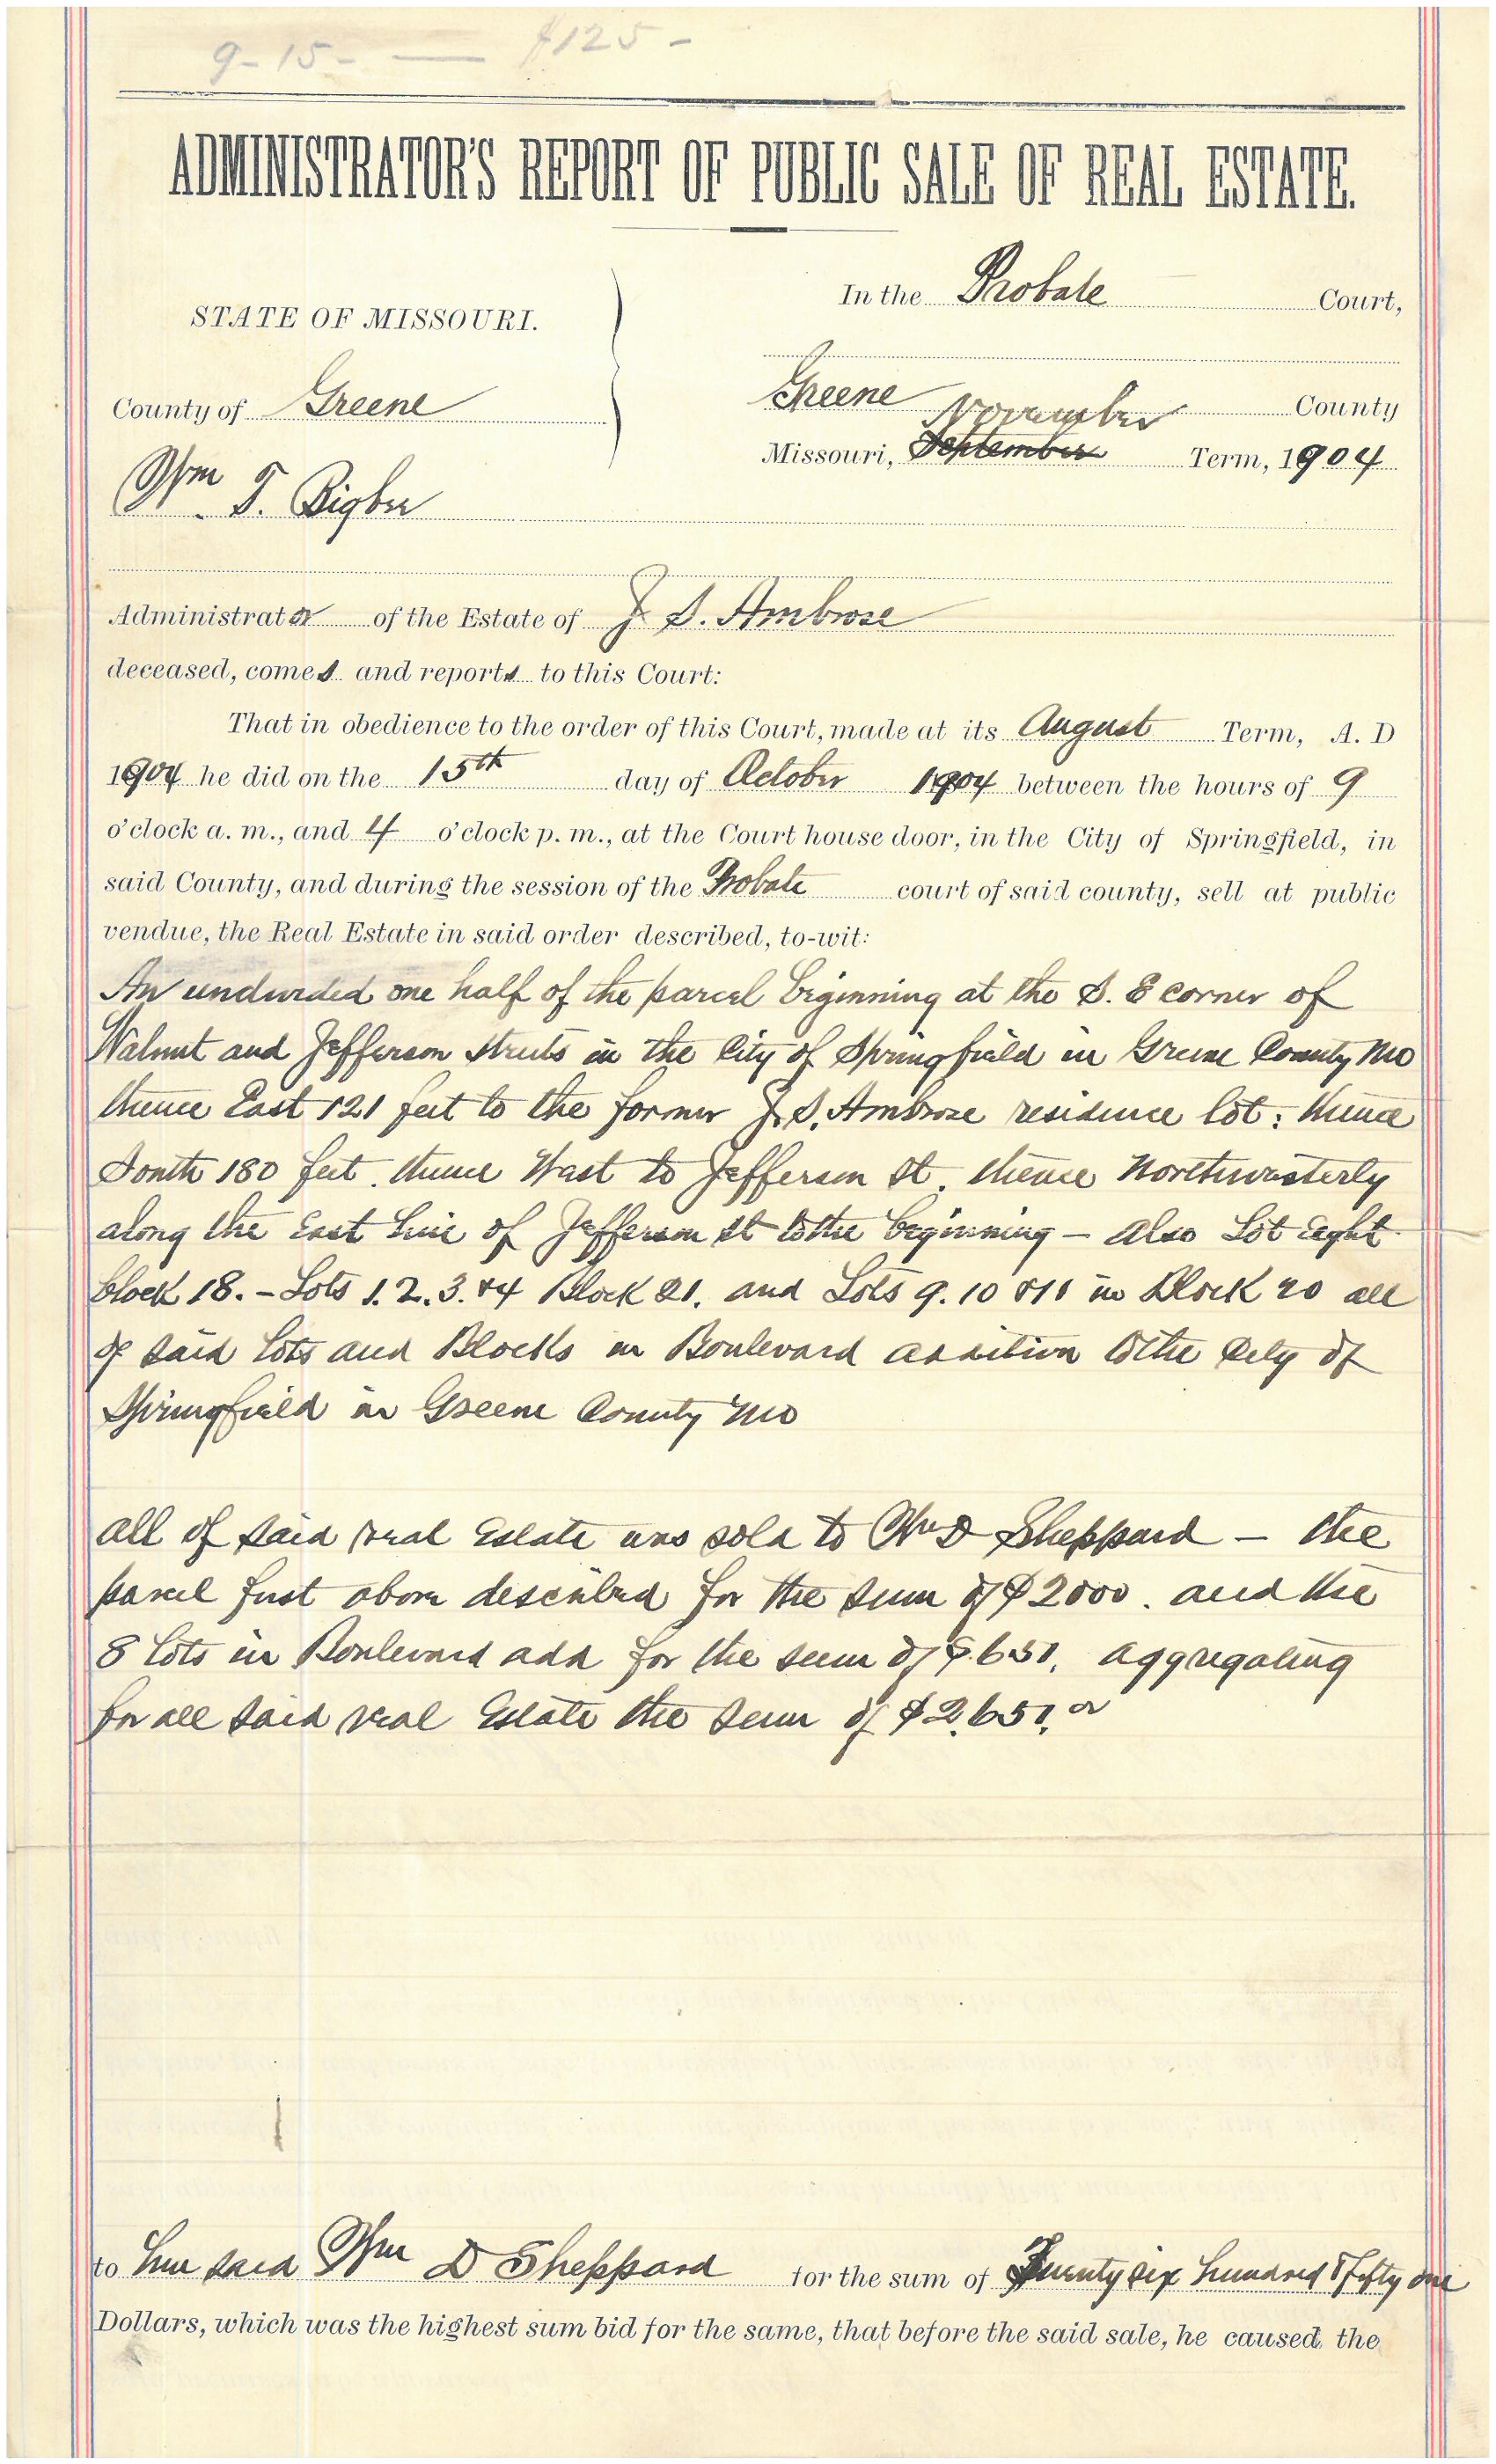 9-15- — $125-
ADMINISTRATOR'S REPORT OF PUBLIC SALE OF REAL ESTATE.
In the Probate Court,
STATE OF MISSOURI.
County of Greene
Greene County
November
Missouri, September Term, 1904
Wm T. Bigbee
Administrator of the Estate of J. S. Ambrose
deceased, comes and reports to this Court:
That in obedience to the order of this Court, made at its August Term, A. D
1904 he did on the 15th day of October 1904 between the hours of 9
o'clock a. m., and 4 o'clock p. m., at the Court house door, in the City of Springfield, in
said County, and during the session of the Probate court of said county, sell at public
vendue, the Real Estate in said order described, to-wit:
An undivided one half of the parcel beginning at the S. E corner of
Walnut and Jefferson streets in the City of Springfield in Greene County Mo
thence East 121 feet to the former J. S. Ambrose residence lot: thence
South 180 feet. thence West to Jefferson St. thence Northwesterly
along the East line of Jefferson St to the beginning - also Lot Eight
block 18. - Lots 1. 2. 3. & 4 Block 21. and Lots 9. 10 & 11 in Block 20 all
of said Lots and Blocks in Boulevard addition to the City of
Springfield in Greene County Mo
all of said real Estate was sold to Wm D Sheppard - the
parcel first above described for the sum of $2000. and the
8 lots in Boulevard add for the sum of $651. aggregating
for all said real Estate the sum of $2,651.00
to him said Wm D Sheppard for the sum of Twenty six hundred & fifty one
Dollars, which was the highest sum bid for the same, that before the said sale, he caused the